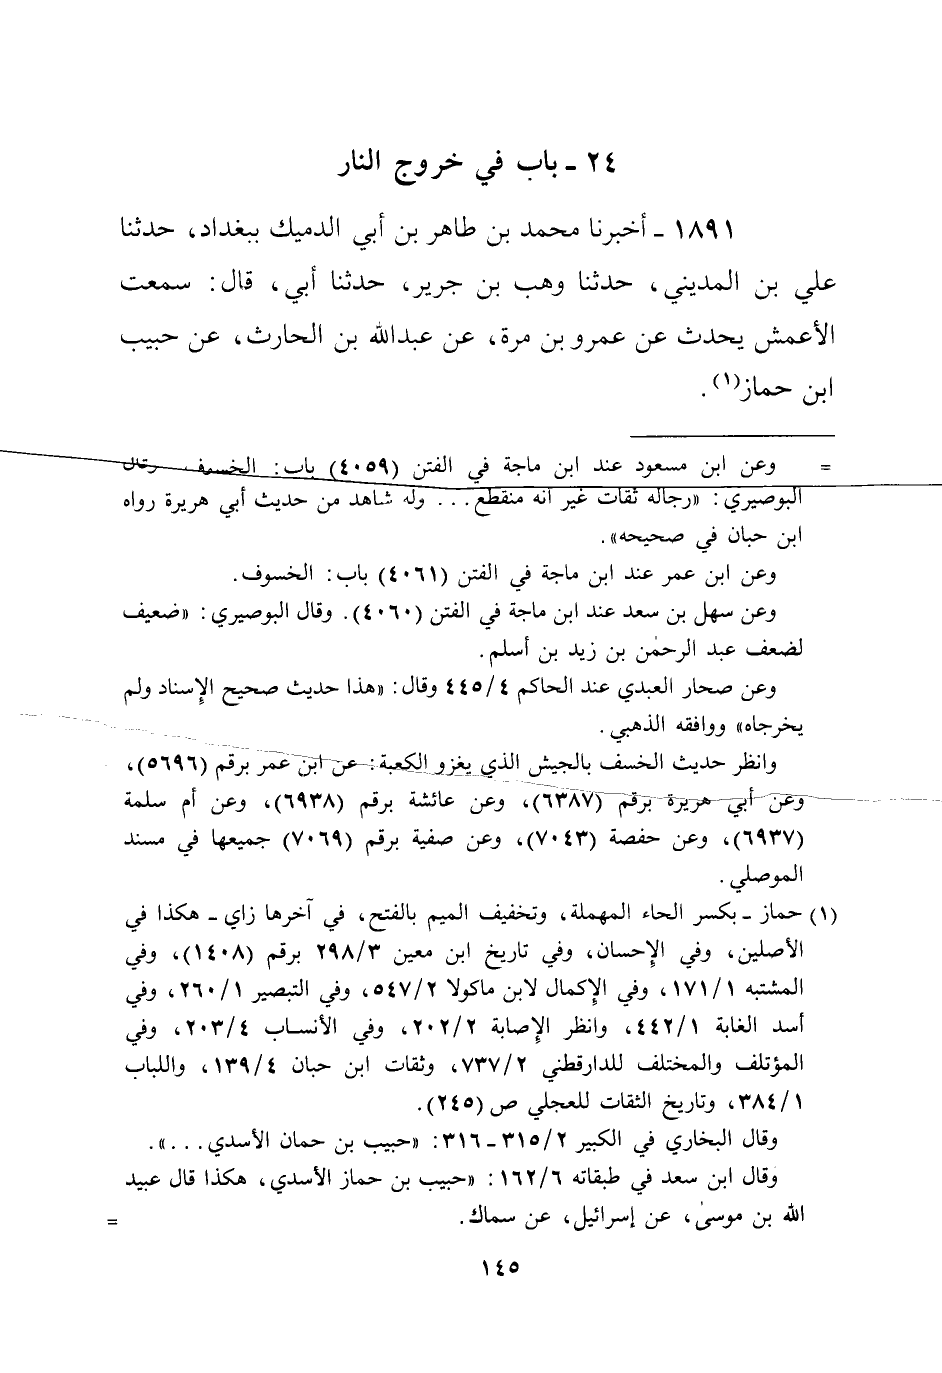 ٢٤ ـ باب في خروج النار
١٨٩١ ـ أخبرنا محمد بن طاهر بن أبي الدميك ببغداد، حدثنا
علي بن المديني، حدثنا وهب بن جرير، حدثنا أبي، قال: سمعت
الأعمش يحدث عن عمرو بن مرة، عن عبدالله بن الحارث، عن حبيب
ابن حماز(١).
= وعن ابن مسعود عند ابن ماجة في الفتن (٤٠٥٩) باب: الخسوف، وقال
البوصيري: «رجاله ثقات غير أنه منقطع... وله شاهد من حديث أبي هريرة رواه
ابن حبان في صحيحه».
وعن ابن عمر عند ابن ماجة في الفتن (٤٠٦١) باب: الخسوف.
وعن سهل بن سعد عند ابن ماجة في الفتن (٤٠٦٠). وقال البوصيري: «ضعيف
لضعف عبد الرحمٰن بن زيد بن أسلم.
وعن صحار العبدي عند الحاكم ٤/٤٤٥ وقال: «هذا حديث صحيح الإسناد ولم
يخرجاه» ووافقه الذهبي.
وانظر حديث الخسف بالجيش الذي يغزو الكعبة: عن ابن عمر برقم (٥٦٩٦)،
وعن أبي هريرة برقم (٦٣٨٧)، وعن عائشة برقم (٦٩٣٨)، وعن أم سلمة
(٦٩٣٧)، وعن حفصة (٧٠٤٣)، وعن صفية برقم (٧٠٦٩) جميعها في مسند
الموصلي.
(١) حماز ـ بكسر الحاء المهملة، وتخفيف الميم بالفتح، في آخرها زاي ـ هكذا في
الأصلين، وفي الإحسان، وفي تاريخ ابن معين ٣/٢٩٨ برقم (١٤٠٨)، وفي
المشتبه ١/١٧١، وفي الإكمال لابن ماكولا ٢/٥٤٧، وفي التبصير ١/٢٦٠، وفي
أسد الغابة ١/٤٤٢، وانظر الإصابة ٢/٢٠٢، وفي الأنساب ٤/٢٠٣، وفي
المؤتلف والمختلف للدارقطني ٢/٧٣٧، وثقات ابن حبان ٤/١٣٩، واللباب
١/٣٨٤، وتاريخ الثقات للعجلي ص (٢٤٥).
وقال البخاري في الكبير ٢/٣١٥ـ٣١٦: «حبيب بن حمان الأسدي...».
وقال ابن سعد في طبقاته ٦/١٦٢: «حبيب بن حماز الأسدي، هكذا قال عبيد
الله بن موسىٰ، عن إسرائيل، عن سماك. =
١٤٥